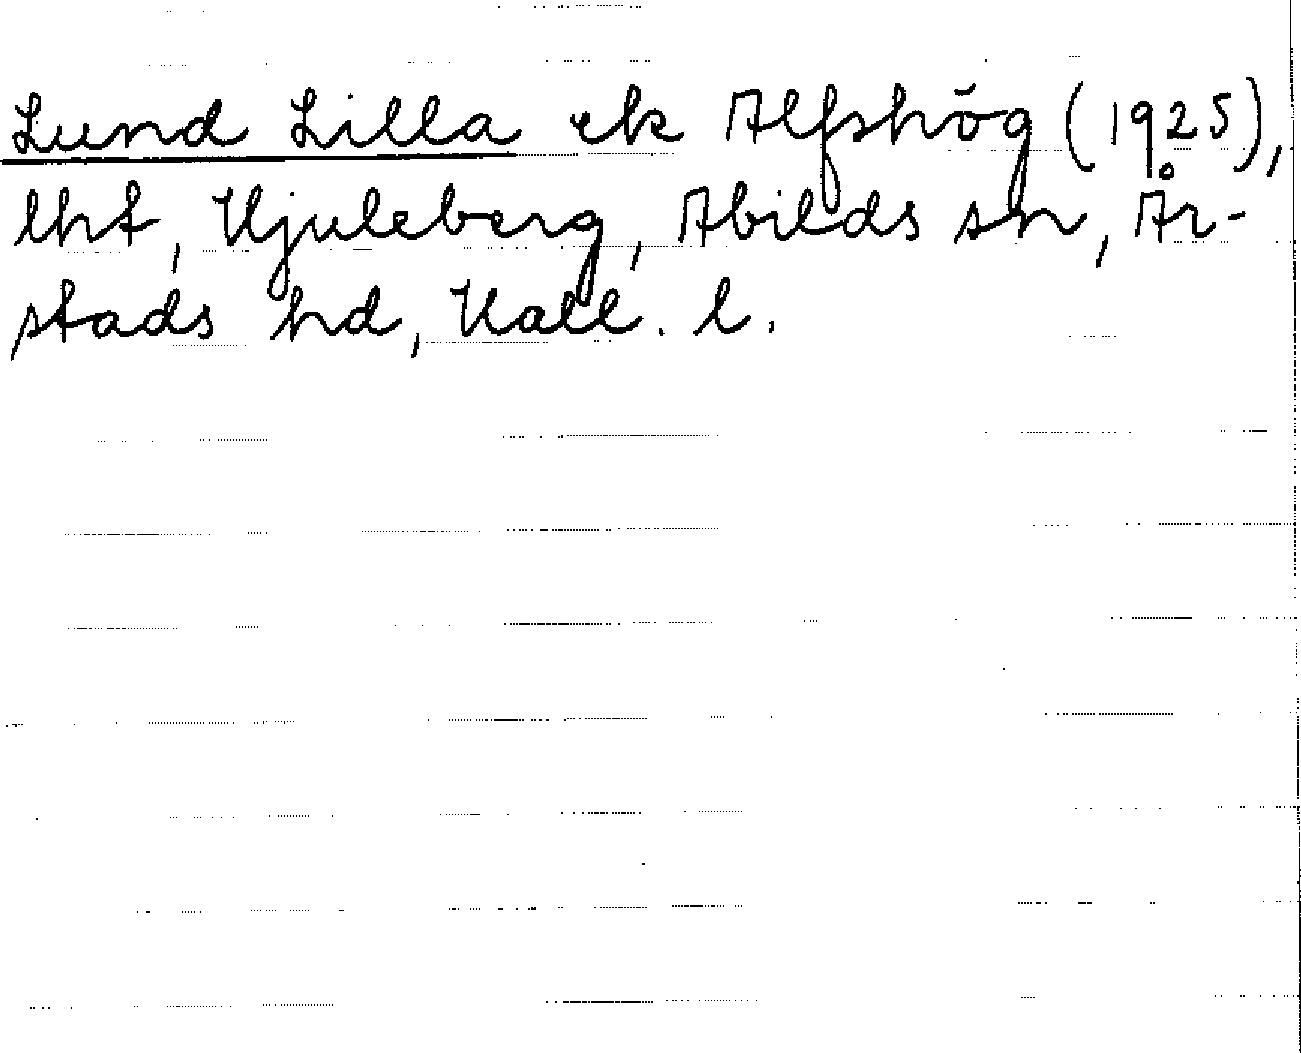 Lund Lilla el Alfshög (1925),
lht, Hjuleberg, Abilds sn, År-
stads hd, Hall. l.